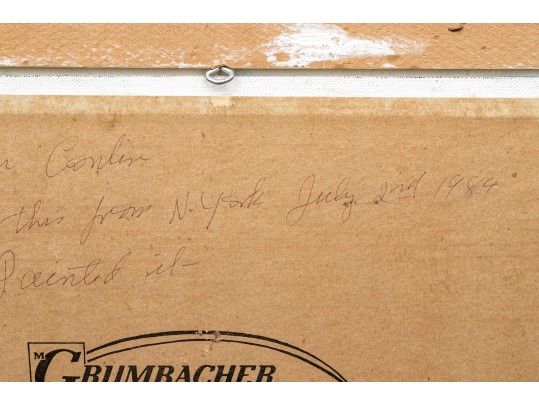 Conlin
this from N. York July 2nd 1984
Painted it
M GRUMBACHER